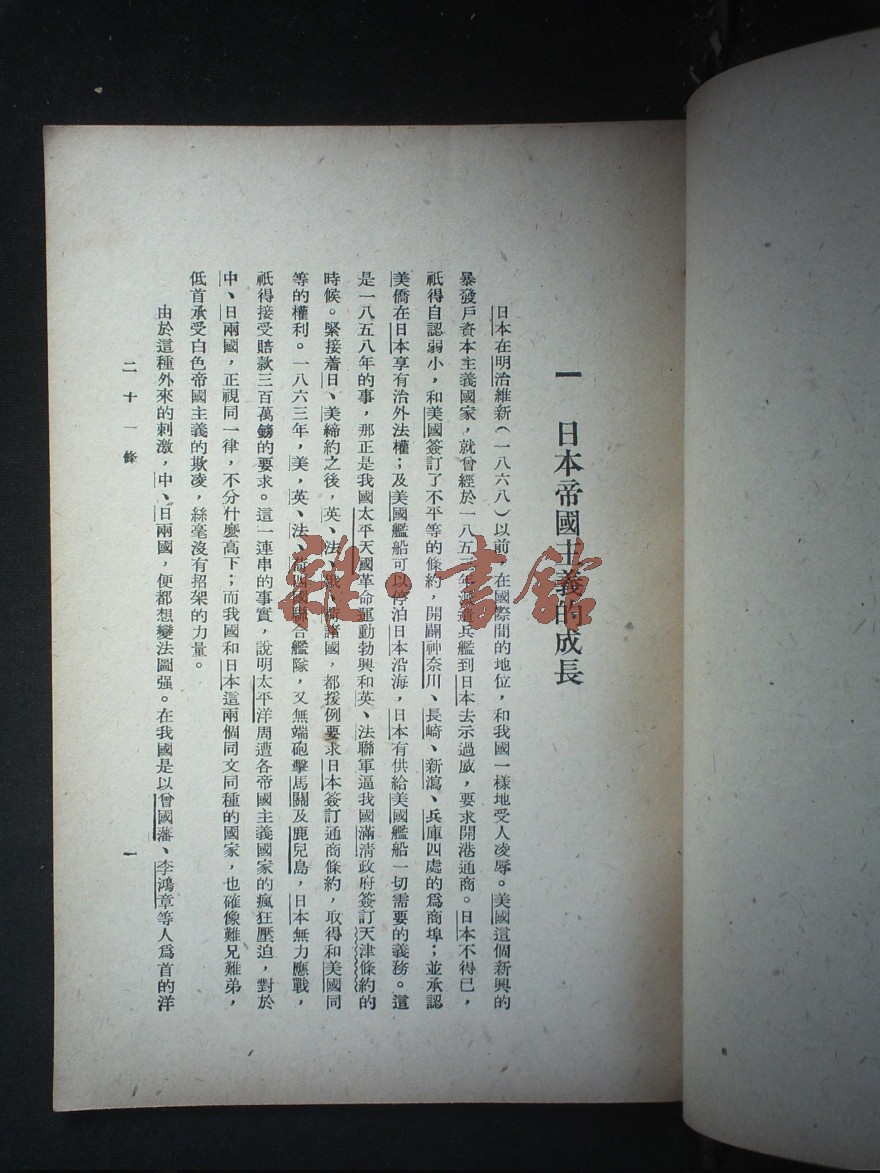 一 日本帝國主義的成長
日本在明治維新(一八六八)以前，在國際間的地位，和我國一樣地受人凌辱。美國這個新興的
暴發戶資本主義國家，就曾經於一八五三年派遣兵艦到日本去示過威，要求開港通商。日本不得已，
祇得自認弱小，和美國簽訂了不平等的條約，開闢神奈川、長崎、新瀉、兵庫四處的爲商埠；並承認
美僑在日本享有治外法權；及美國艦船可以停泊日本沿海，日本有供給美國艦船一切需要的義務。這
是一八五八年的事，那正是我國太平天國革命運動勃興和英、法聯軍逼我國滿清政府簽訂天津條約的
時候。緊接着日、美締約之後，英、法、俄、荷諸國，都援例要求日本簽訂通商條約，取得和美國同
等的權利。一八六三年，美，英、法、荷四國聯合艦隊，又無端砲擊馬關及鹿兒島，日本無力應戰，
祇得接受賠款三百萬鎊的要求。這一連串的事實，說明太平洋周遭各帝國主義國家的瘋狂壓迫，對於
中、日兩國，正視同一律，不分什麼高下；而我國和日本這兩個同文同種的國家，也確像難兄難弟，
低首承受白色帝國主義的欺凌，絲毫沒有招架的力量。
由於這種外來的刺激，中、日兩國，便都想變法圖强。在我國是以曾國藩、李鴻章等人爲首的洋
二十一條
一
雜·書館